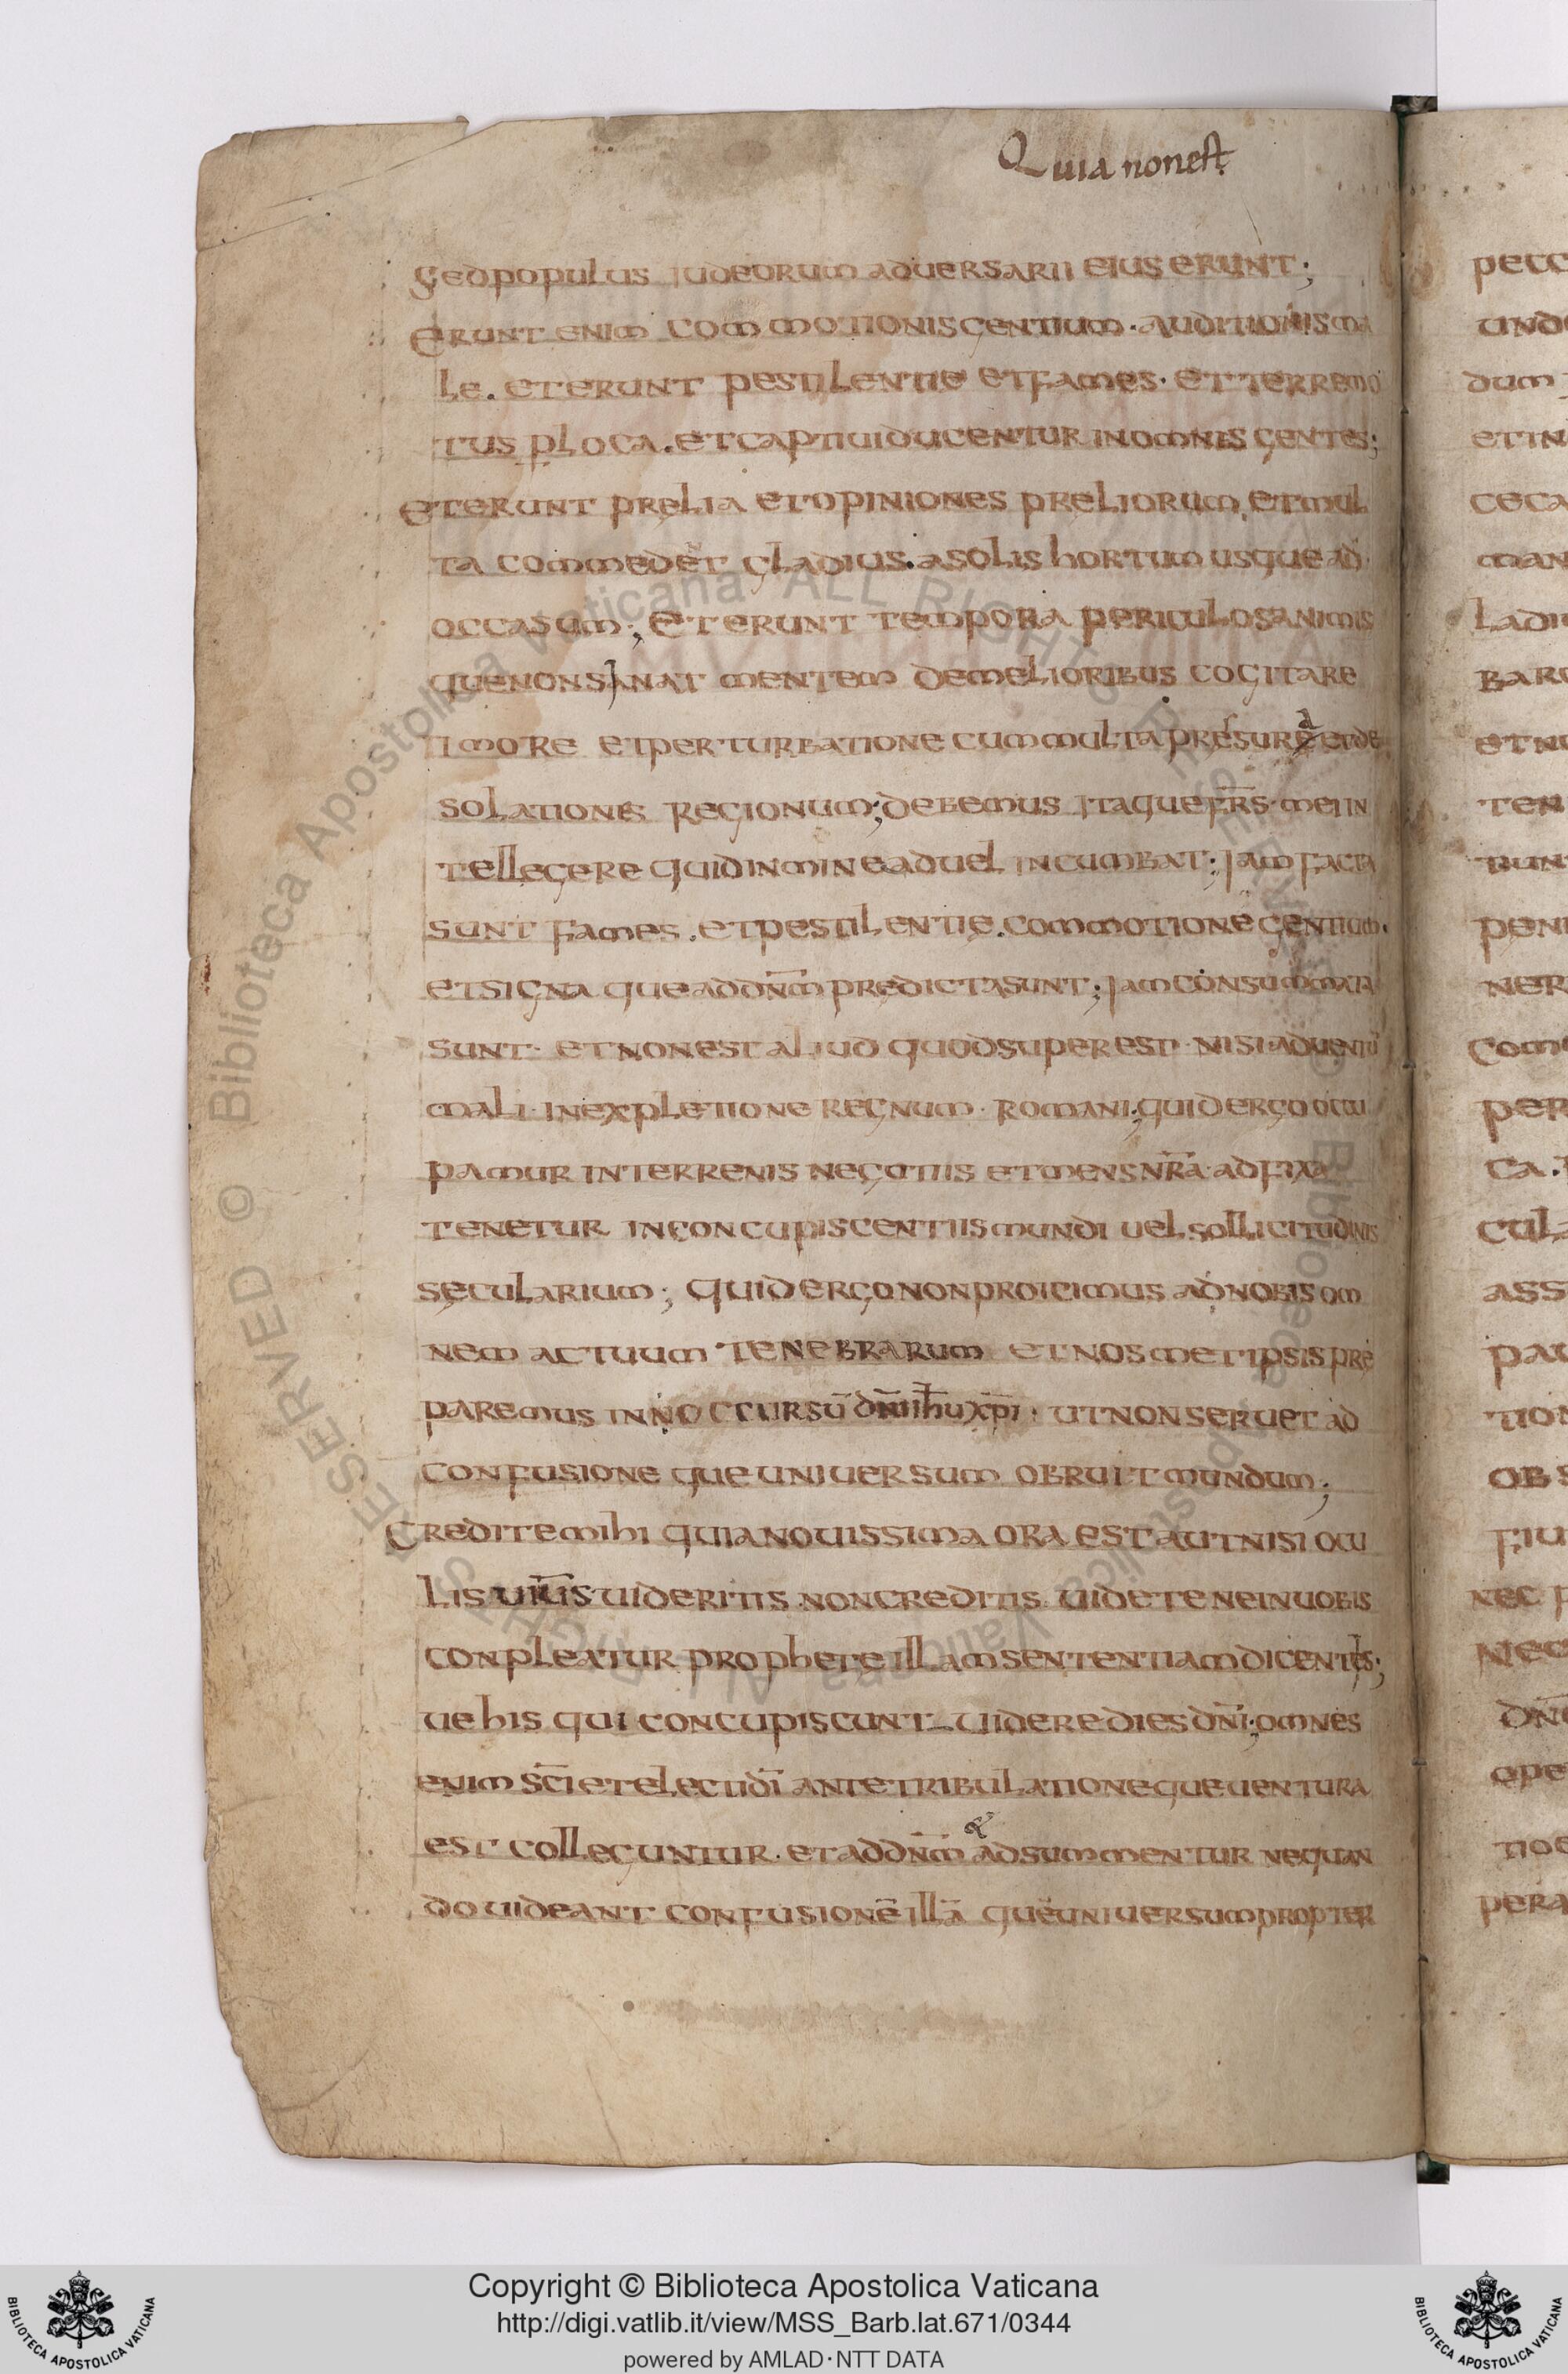 Quia non est
sed populus iudeorum aduersarii eius erunt;
Erunt enim commotionis gentium · auditionis ma
le. et erunt pestilentie et fames · et terremo
tus p̱ loca. et captiui ducentur in omnes gentes;
Et erunt prelia et opiniones preliorum, et mul
ta commedet gladius. a solis hortum usque ad
occasum; Et erunt tempora periculosa nimis
que non sinat mentem de melioribus cogitare
timore et perturbatione cum multa presura et de
solationes regionum; debemus itaque fr̄s mei in
tellegere quid inmineat uel incumbat; Iam facta
sunt fames. et pestilentie. commotione gentium.
et signa que ad dn̄m predicta sunt; Iam consummata
sunt · et non est aliud quod superest · nisi aduentū
mali · in expletione regnum · romani; quid ergo occu
pamur in terrenis negotiis et mens nr̄a · adfixa
tenetur in concupiscentiis mundi uel sollicitudinis
secularium; quid ergo non proicimus ad nobis om
nem actuum tenebrarum et nosmetipsis pre
paremus in occursū dn̄i ih̄u xp̄i · ut non seruet ad
confusione que uniuersum obruit mundum;
Credite mihi quia nouissima ora est aut nisi ocu
lis uideritis non creditis. uidete ne in uobis
conpleatur prophete illam sententiam dicentis;
ue his qui concupiscunt uidere dies dn̄i; omnes
enim sc̄i et electi dī ante tribulatione que uentura
est colleguntur · et ad dn̄m adsummentur nequan
do uideant confusionē illā que uniuersum propter
© Biblioteca Apostolica Vaticana ALL RIGHTS RESERVED
pecc
dum
et in
ceca
man
ladi
et nu
ten
runt
ner
per
ca.
cula
ass
tion
ob s
fiu
nec p
nec
ope
tio
pera
Copyright © Biblioteca Apostolica Vaticana
http://digi.vatlib.it/view/MSS_Barb.lat.671/0344
powered by AMLAD·NTT DATA
BIBLIOTECA APOSTOLICA VATICANA
BIBLIOTECA APOSTOLICA VATICANA